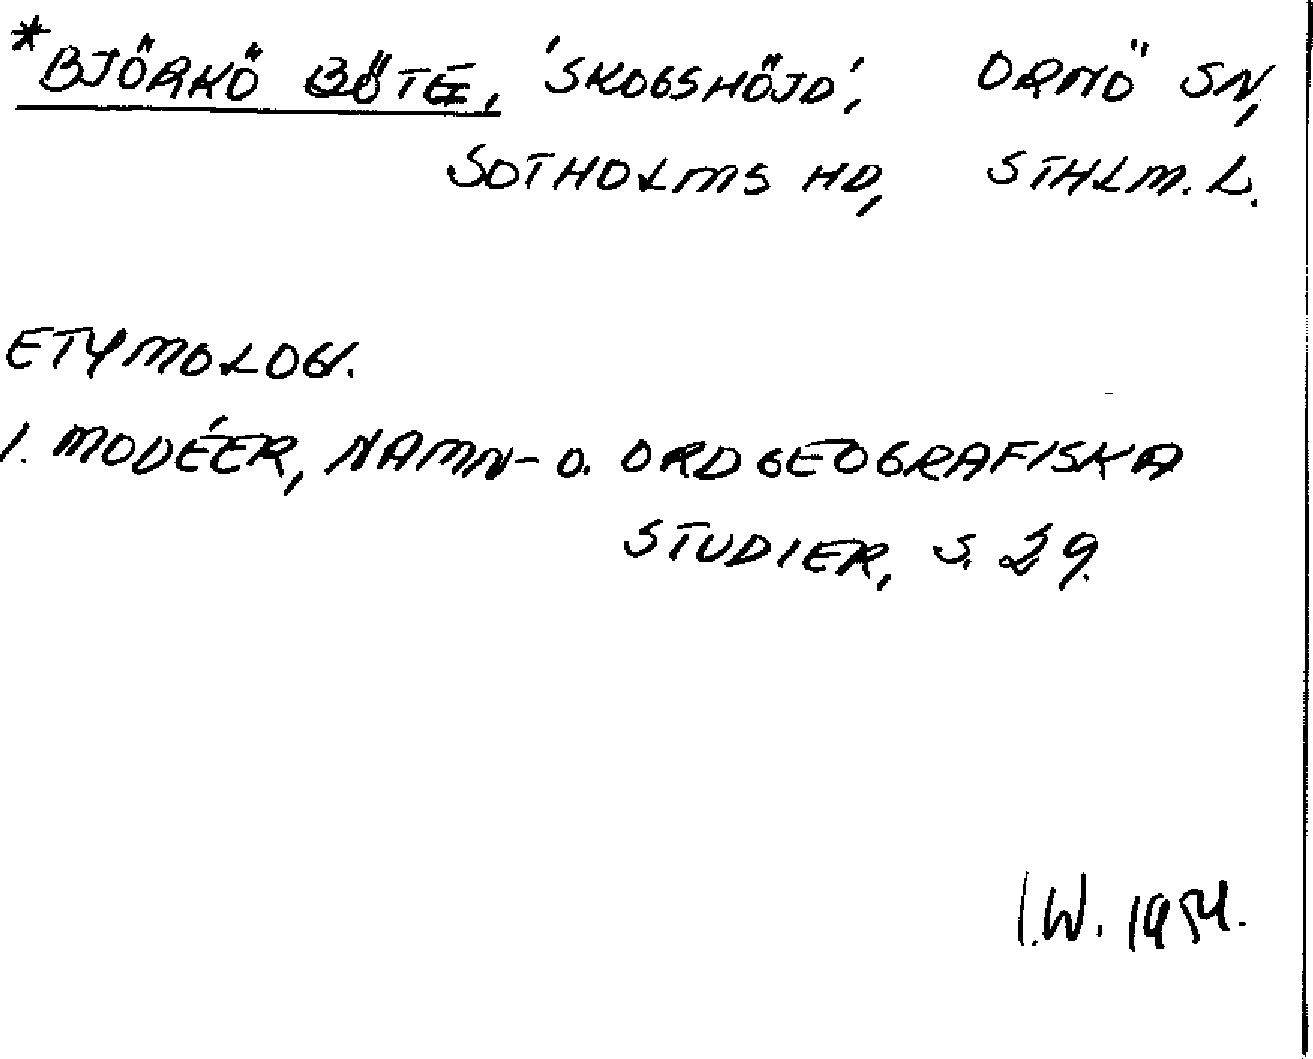 *BJÖRKÖ BÖTE, 'SKOGSHÖJD', ORNÖ SN,
SOTHOLMS HD, STHLM. L.
ETYMOLOGI.
I. MODÉER, NAMN- O. ORDGEOGRAFISKA
STUDIER, S. 29.
I.W. 1954.